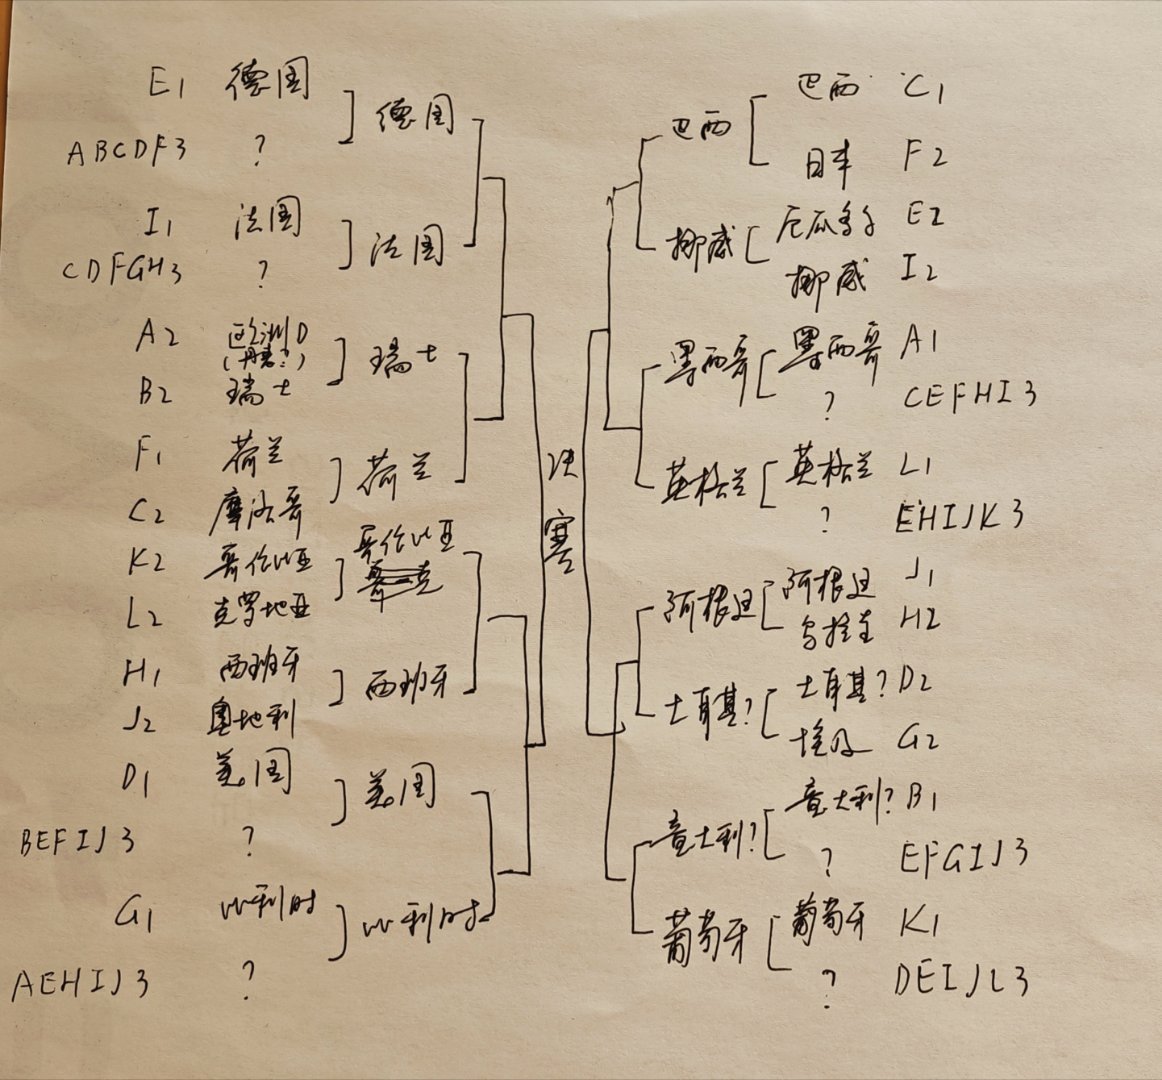 E1 德国
ABCDF3 ?
德国
I1 法国
CDFGH3 ?
法国
A2 欧洲D
(丹麦?)
B2 瑞士
瑞士
F1 荷兰
C2 摩洛哥
荷兰
K2 哥伦比亚
L2 克罗地亚
哥伦比亚
H1 西班牙
J2 奥地利
西班牙
D1 美国
BEFIJ3 ?
美国
G1 比利时
AEHIJ3 ?
比利时
决
赛
巴西
巴西 C1
日本 F2
挪威
厄瓜多尔 E2
挪威 I2
墨西哥
墨西哥 A1
? CEFHI3
英格兰
英格兰 L1
? EHIJK3
阿根廷
阿根廷 J1
乌拉圭 H2
土耳其?
土耳其? D2
埃及 G2
意大利?
意大利? B1
? EFGIJ3
葡萄牙
葡萄牙 K1
? DEIJL3